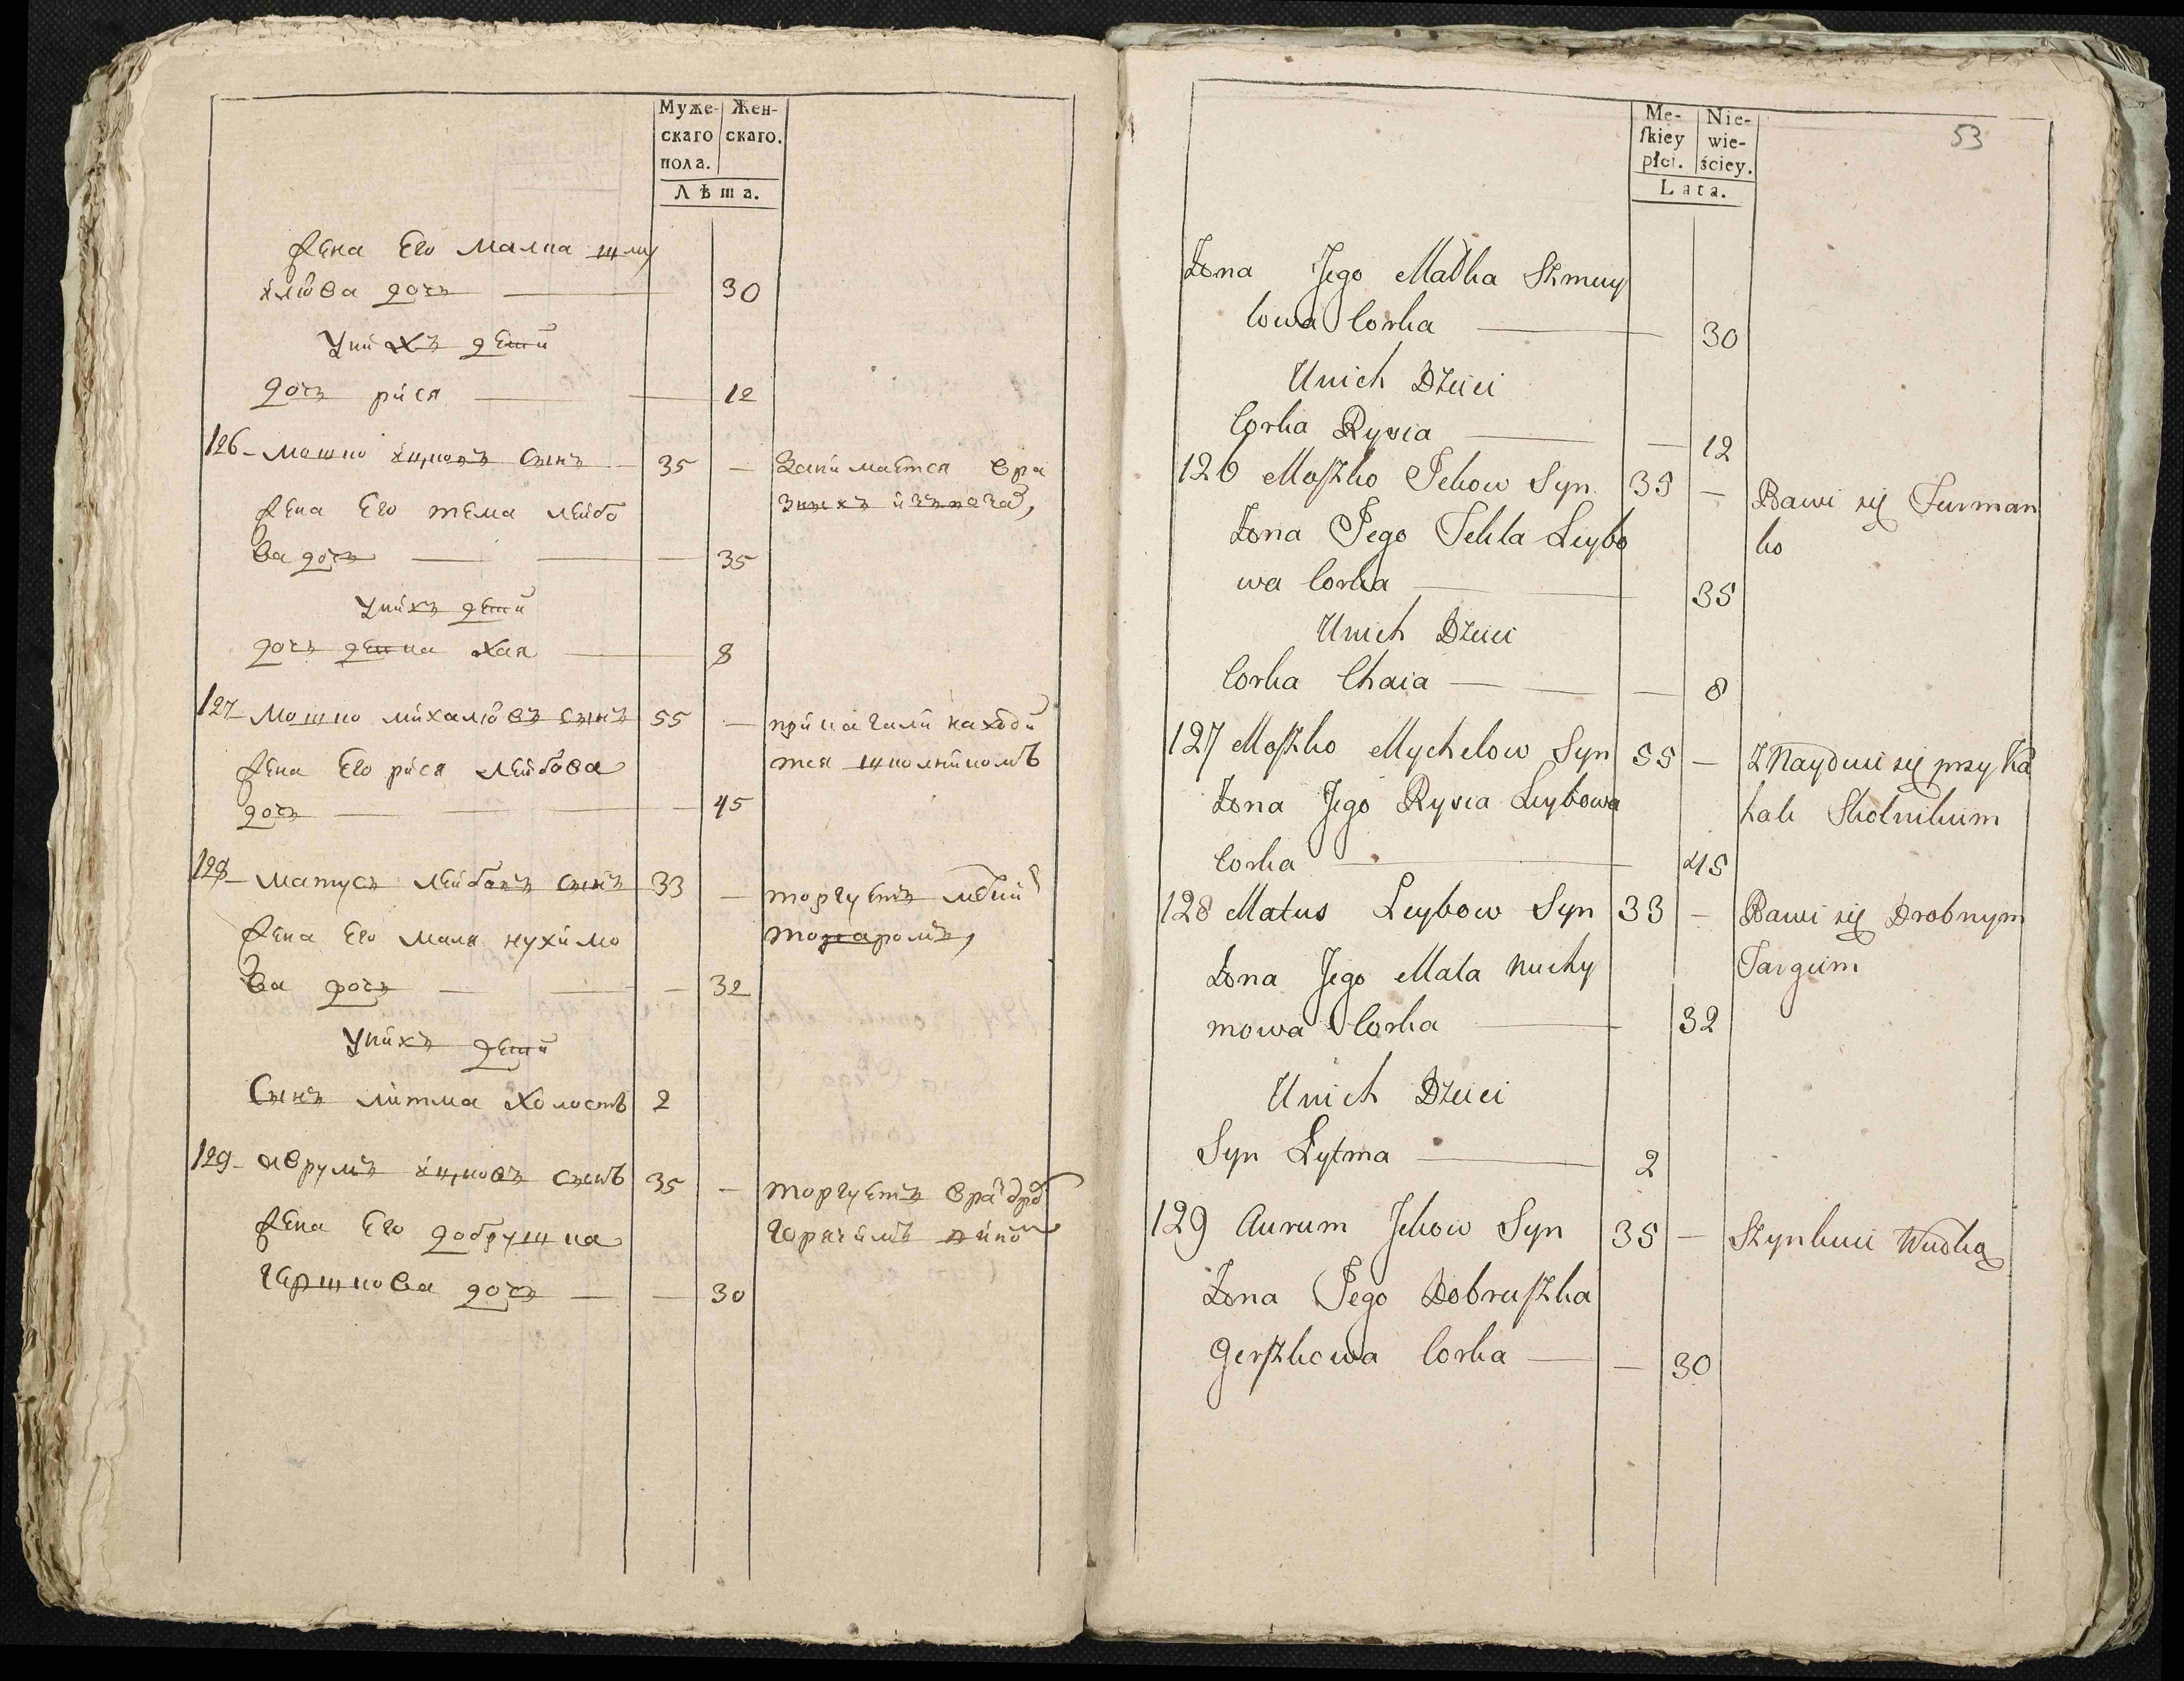 Муже-
скаго
пола.
Жен-
скаго.
Лѣта.
Жена Его малка шму
йлова дочь 30
У ниxъ дети
дочь рися 12
126 мошко ицковъ Сынъ 35 Занимается
Жена Его текла лейбо
ва дочь 35
У нихъ дети
дочь девка хая 8
127 Мошко михалювъ сынъ 55 при кагали находи
тся школникомъ
Жена Его рися лейбова
дочь 45
128 матусъ лейбовъ сынъ 33 торгуетъ
товаромъ
Жена Его мала нухимо
ва дочь 32
У нихъ дети
Сынъ литма холостъ 2
129 аврумъ ицковъ сынъ 35 торгуетъ
горячимъ вино
Жена Его добрушка
гершкова дочь 30
53
Mę-
ſkiey
płci.
Nie-
wie-
ściey.
Lata.
Żona Jego Malka Szmuy
lowa Corka 30
Unich Dzieci
Corka Rysia 12
126 Moſzko Jckow Syn 35 Bawi się Furman
ko
Żona Jego Tekla Leybo
wa Corka 35
Unich Dzieci
Corka Chaia 8
127 Moſzko Mychelow Syn 55 Znayduie się przy Ka
hale Skolnikiem
Żona Jego Rysia Leybowa
Corka 45
128 Matus Leybow Syn 33 Bawi się Drobnym
Targiem
Żona Jego Mala Nuchy
mowa Corka 32
Unich Dzieci
Syn Lytma 2
129 Aurum Jckow Syn 35 Szynkuie Wudką
Żona Jego Dobruſzka
Gerſzkowa Corka 30